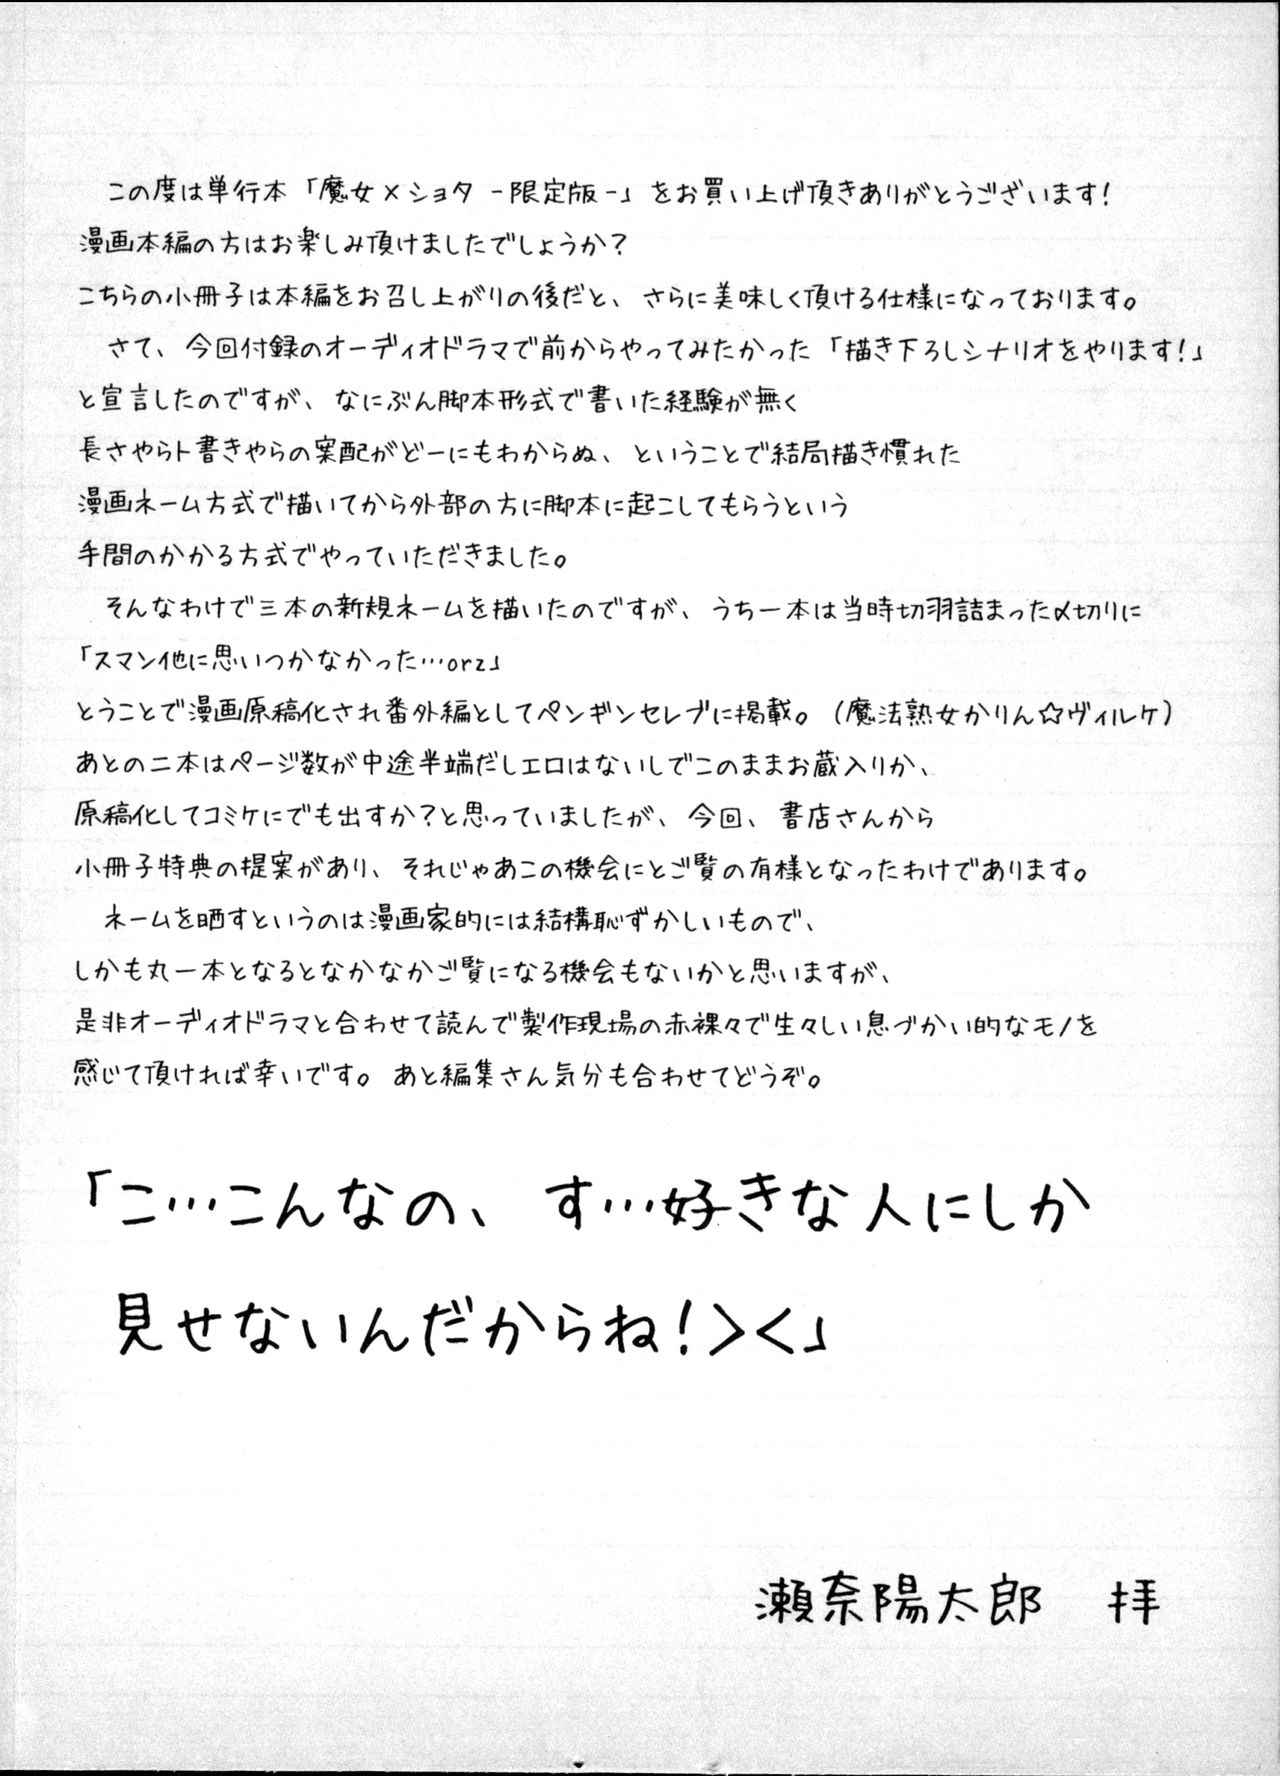 この度は単行本「魔女×ショタ -限定版-」をお買い上げ頂きありがとうございます!
漫画本編の方はお楽しみ頂けましたでしょうか?
こちらの小冊子は本編をお召し上がりの後だと、さらに美味しく頂ける仕様になっております。
さて、今回付録のオーディオドラマで前からやってみたかった「描き下ろしシナリオをやります!」
と宣言したのですが、なにぶん脚本形式で書いた経験が無く
長さやらト書きやらの案配がどーにもわからぬ、ということで結局描き慣れた
漫画ネーム方式で描いてから外部の方に脚本に起こしてもらうという
手間のかかる方式でやっていただきました。
そんなわけで三本の新規ネームを描いたのですが、うち一本は当時切羽詰まった〆切りに
「スマン他に思いつかなかった…orz」
とうことで漫画原稿化され番外編としてペンギンセレブに掲載。(魔法熟女かりん☆ヴィルケ)
あとの二本はページ数が中途半端だしエロはないしでこのままお蔵入りか、
原稿化してコミケにでも出すか?と思っていましたが、今回、書店さんから
小冊子特典の提案があり、それじゃあこの機会にとご覧の有様となったわけであります。
ネームを晒すというのは漫画家的には結構恥ずかしいもので、
しかも丸一本となるとなかなかご覧になる機会もないかと思いますが、
是非オーディオドラマと合わせて読んで製作現場の赤裸々で生々しい息づかい的なモノを
感じて頂ければ幸いです。あと編集さん気分も合わせてどうぞ。
「こ…こんなの、す…好きな人にしか
見せないんだからね!＞＜」
瀬奈陽太郎 拝